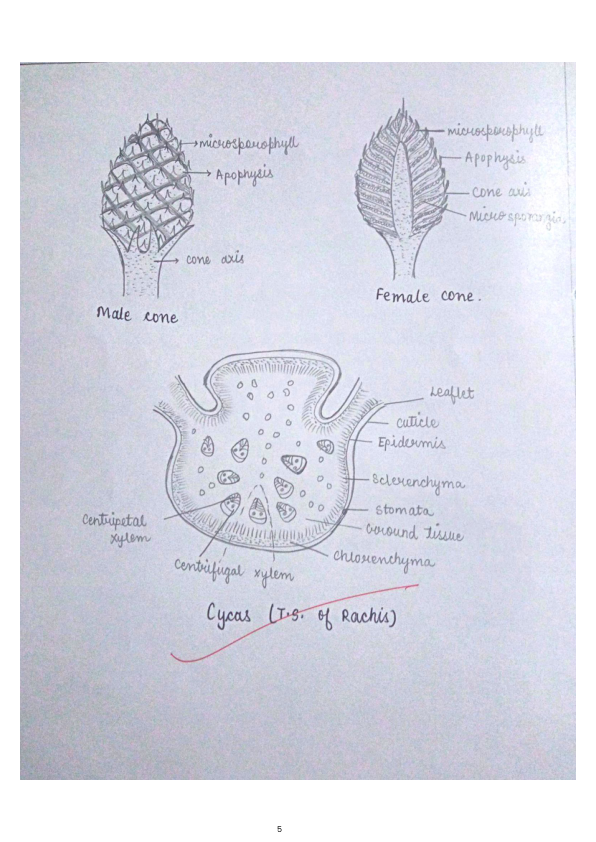 microsporophyll
Apophysis
cone axis
Male cone
microsporophyll
Apophysis
cone axis
Microsporangia.
Female cone.
Leaflet
cuticle
Epidermis
Sclerenchyma
Stomata
Ground tissue
Chlorenchyma
Centripetal
xylem
Centrifugal xylem
Cycas (T.S. of Rachis)
5